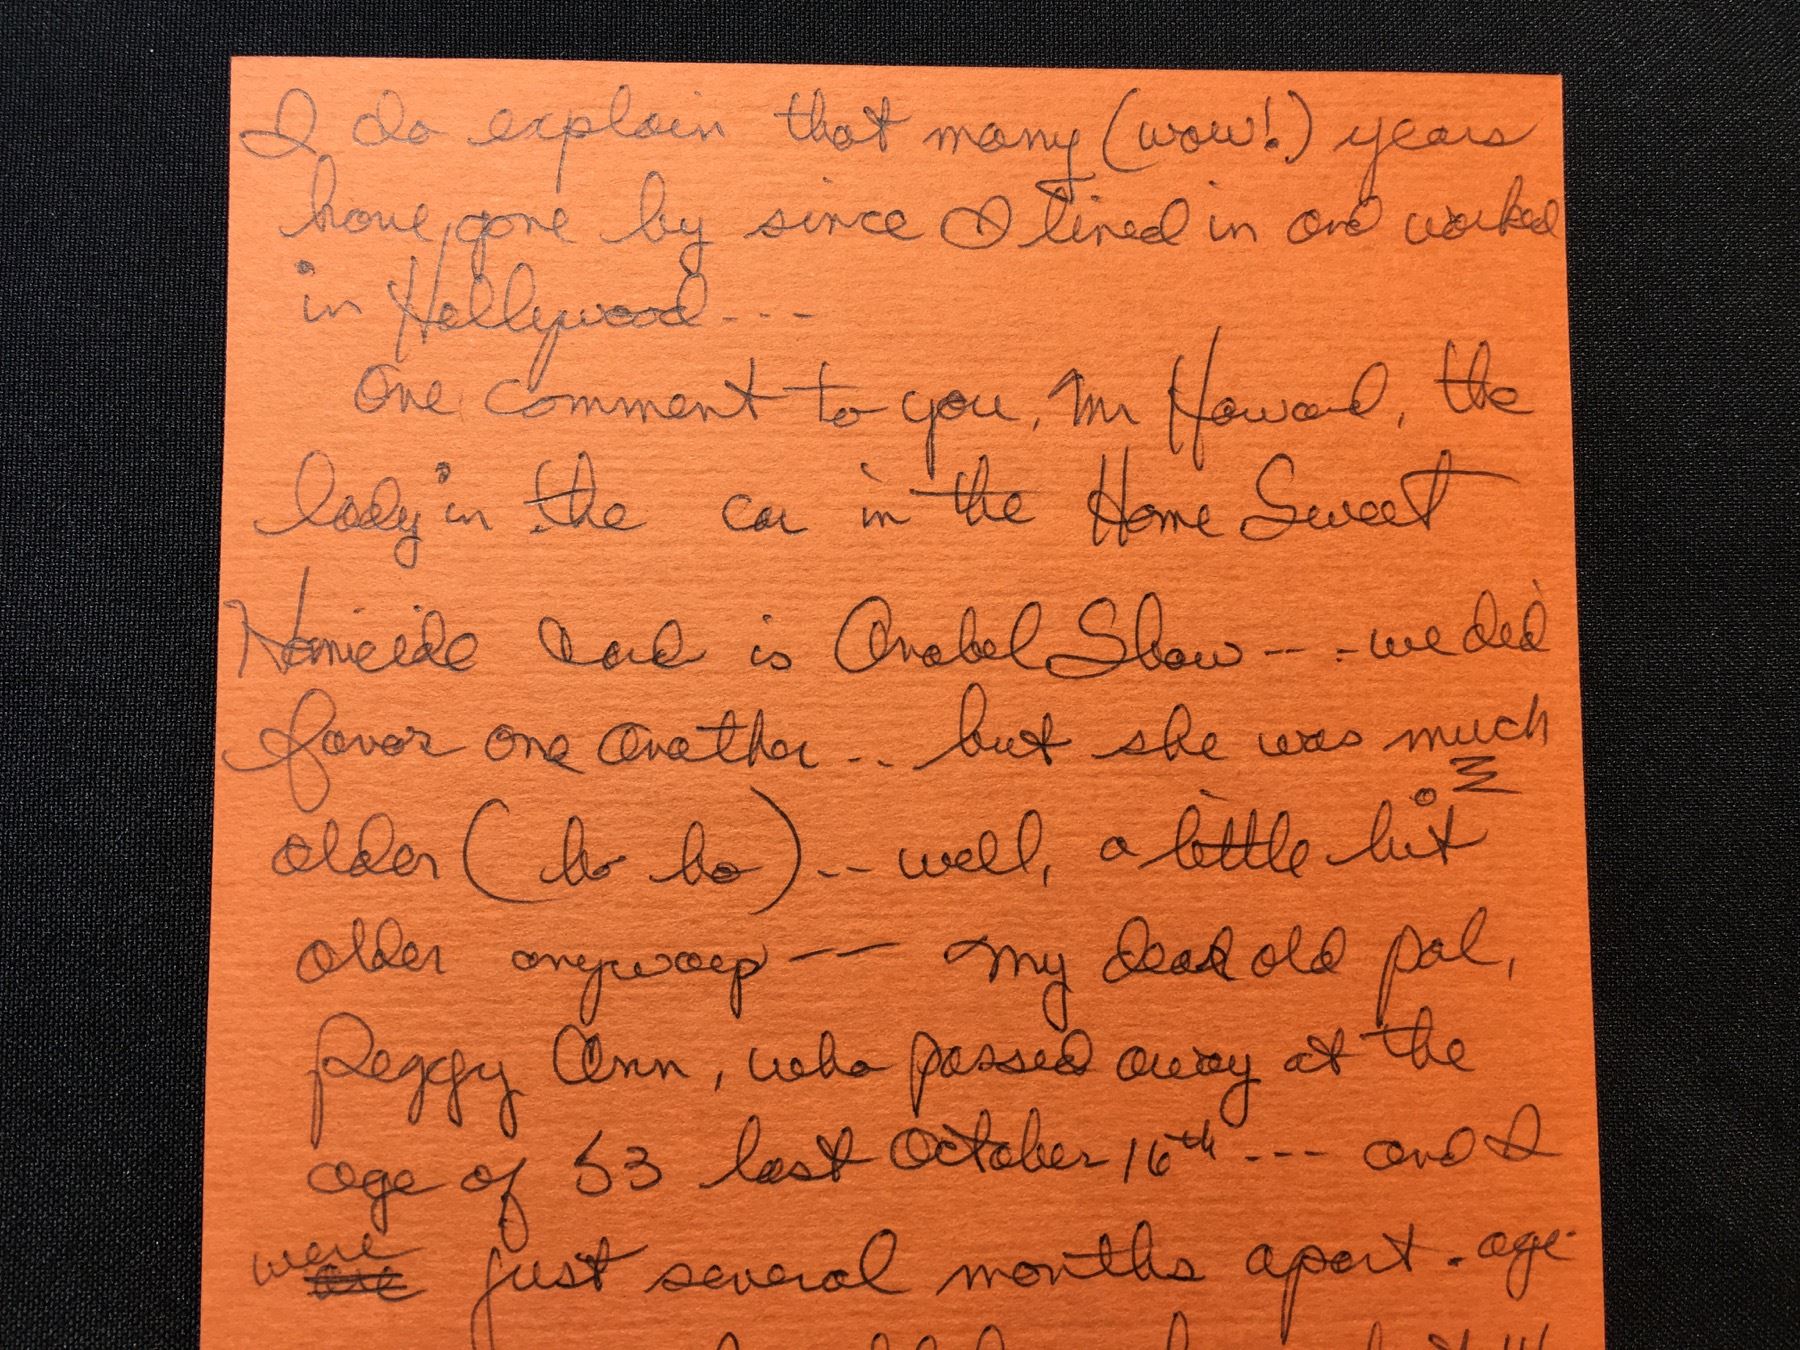 I do explain that many (wow!) years
have gone by since I lived in and worked
in Hollywood - - -
One comment to you, Mr Howard, the
lady in the car in the Home Sweet
Homicide card is Anabel Shaw -- - we did
favor one another... but she was much
older (ho ho) -- well, a little bit
older anyway -- My dear old pal,
Peggy Ann, who passed away at the
age of 53 last October 16th --- and I
were just several months apart - age